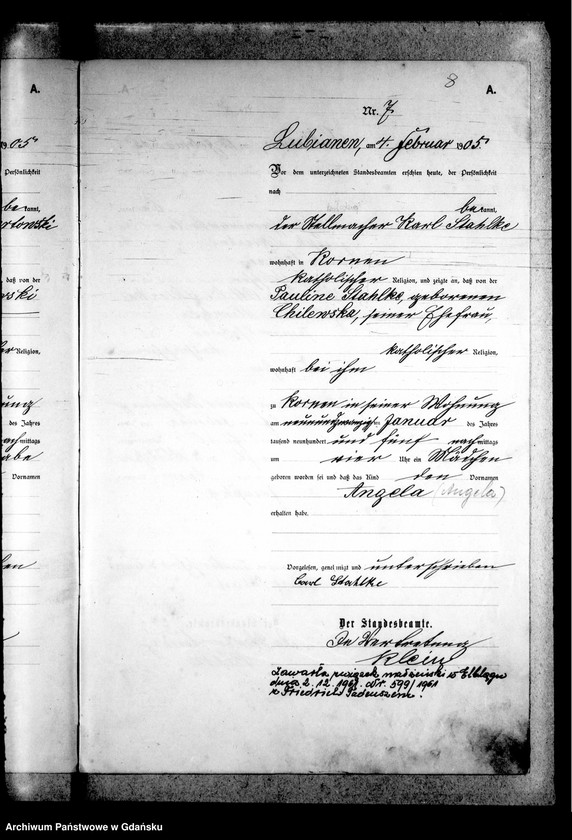 A.
905
Persönlichkeit
be kannt,
rtowski
daß von der
wski
Religion,
ung
des Jahres
mittags
abe
Vornamen
8 A.
Nr. 7.
Lubianen, am 4. Februar 1905.
Vor dem unterzeichneten Standesbeamten erschien heute, der Persönlichkeit
nach
be kannt,
der Stellmacher Karl Stahlke
wohnhaft in Kornen
katholischer Religion, und zeigte an, daß von der
Pauline Stahlke, geborenen
Chilewska, seiner Ehefrau,
katholischer Religion,
wohnhaft bei ihm
zu Kornen in seiner Wohnung
am neunundzwanzigsten Januar des Jahres
tausend neunhundert und fünf nach mittags
um vier Uhr ein Mädchen
geboren worden sei und daß das Kind den Vornamen
Angela (Angela)
erhalten habe.
Vorgelesen, genehmigt und unterschrieben
Carl Stahlke
Der Standesbeamte.
In Vertretung
Klein
Zawarła związek małżeński w Elblągu
dnia 2. 12. 1961. Nr. 599/1961
z Friedrich Tadeuszem.
Archiwum Państwowe w Gdańsku